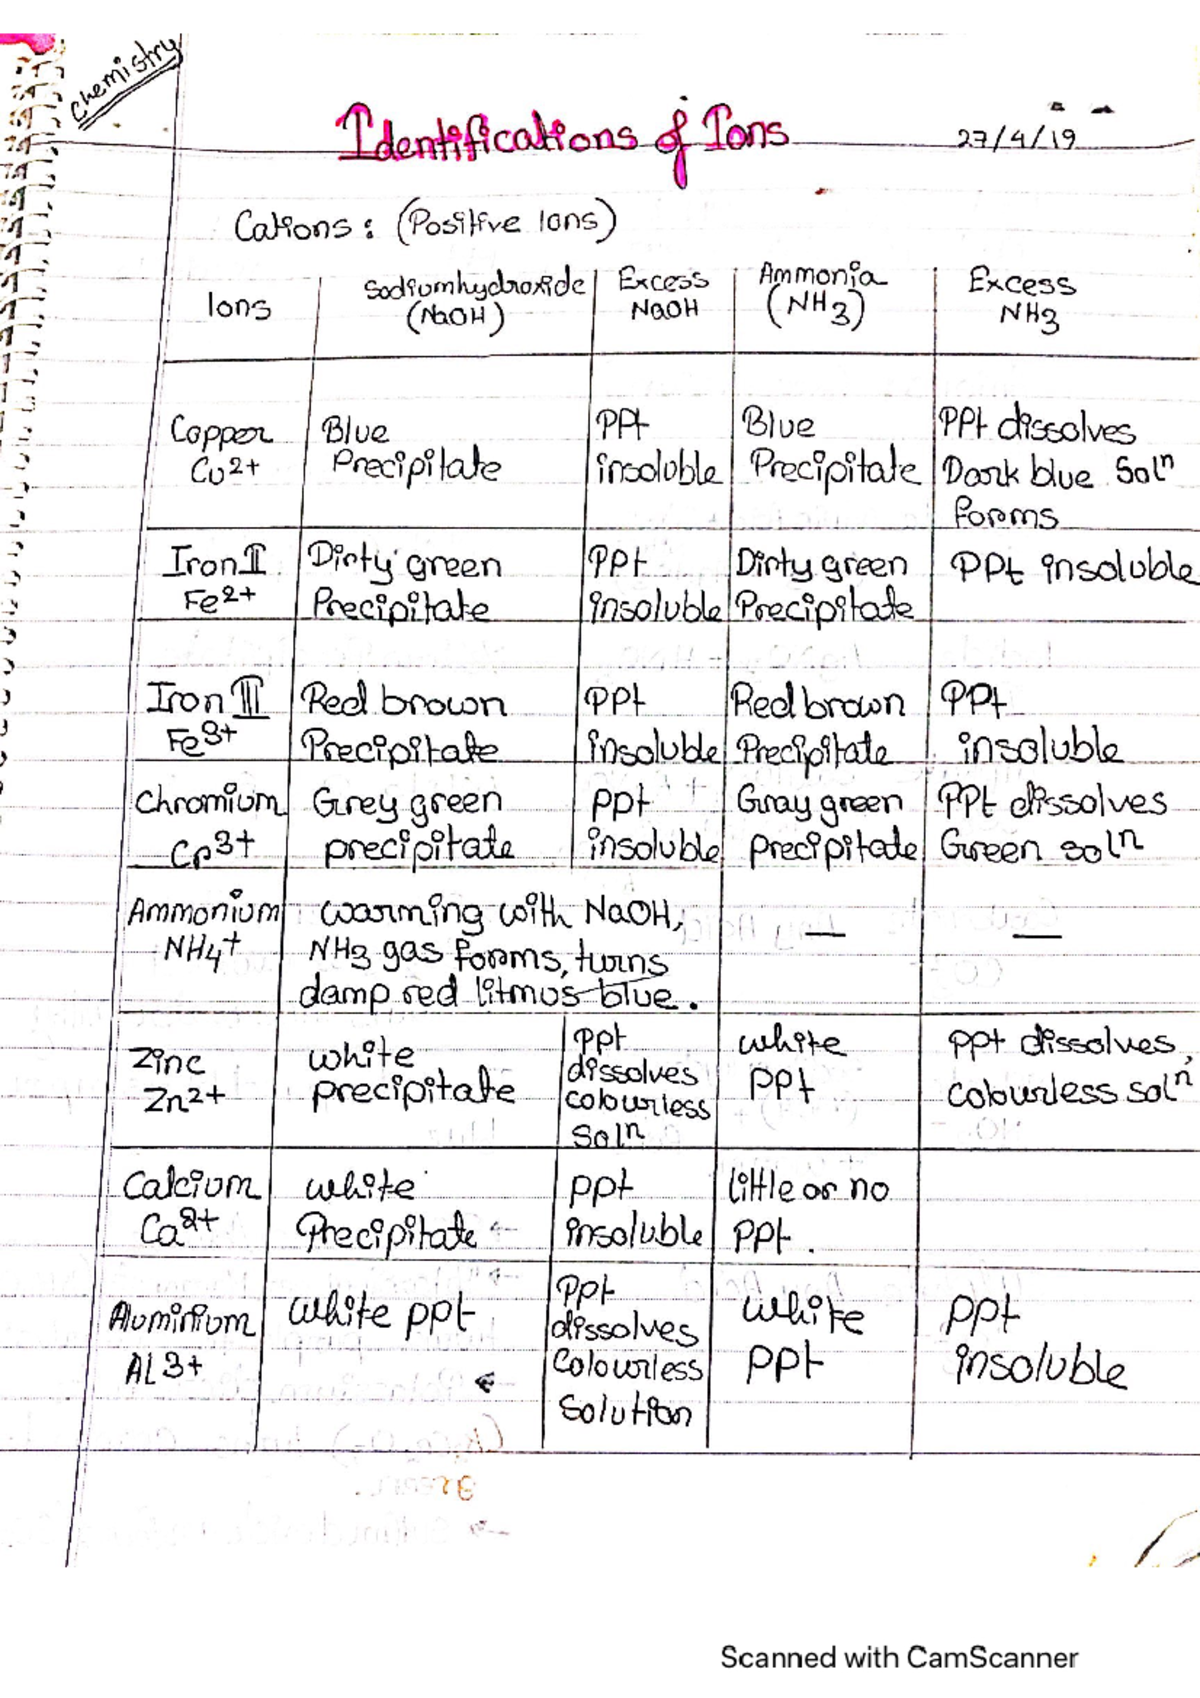 Chemistry
Identifications of Ions
27/4/19
Cations: (Positive Ions)
Ions | Sodiumhydroxide (NaOH) | Excess NaOH | Ammonia (NH3) | Excess NH3
Copper Cu2+ | Blue Precipitate | PPt insoluble | Blue Precipitate | PPt dissolves Dark blue Solⁿ forms
Iron II Fe2+ | Dirty green Precipitate | PPt insoluble | Dirty green Precipitate | PPt insoluble
Iron III Fe3+ | Red brown Precipitate | PPt insoluble | Red brown Precipitate | PPt insoluble
Chromium Cr3+ | Grey green precipitate | ppt insoluble | Gray green Precipitate | PPt dissolves Green solⁿ
Ammonium NH4+ | warming with NaOH, NH3 gas forms, turns damp red litmus blue. | — | —
Zinc Zn2+ | white precipitate | ppt dissolves colourless Solⁿ | white PPt | ppt dissolves, colourless solⁿ
Calcium Ca2+ | white Precipitate | ppt insoluble | little or no PPt.
Aluminium AL3+ | white ppt | PPt dissolves Colourless Solution | white PPt | ppt insoluble
Scanned with CamScanner